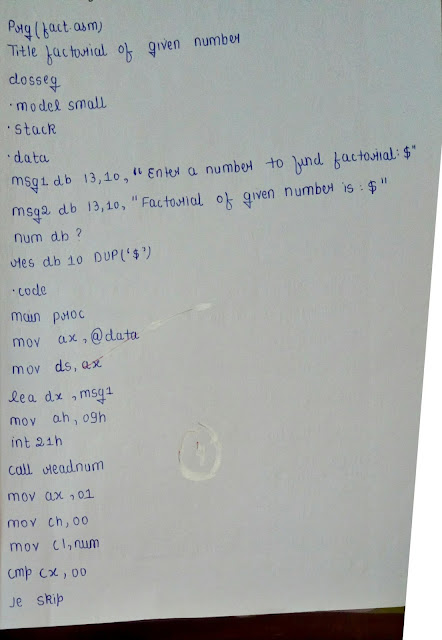 Prg (fact.asm)
Title factorial of given number
dosseg
.model small
.stack
.data
msg1 db 13,10, "Enter a number to find factorial: $"
msg2 db 13,10, "Factorial of given number is : $"
num db ?
res db 10 DUP('$')
.code
main proc
mov ax, @data
mov ds, ax
lea dx, msg1
mov ah, 09h
int 21h
call readnum
mov ax, 01
mov ch, 00
mov cl, num
cmp cx, 00
je skip